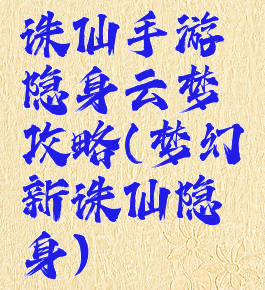 诛仙手游
隐身云梦
攻略(梦幻
新诛仙隐
身)